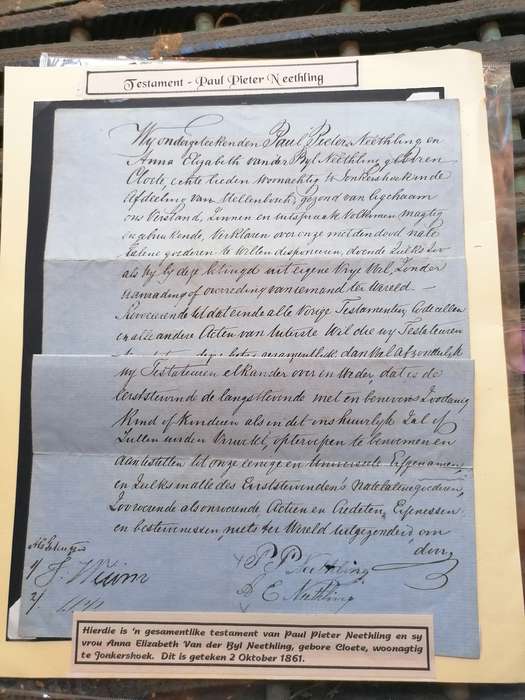 Testament - Paul Pieter Neethling
Wij ondergeteekenden Paul Pieter Neethling en
Anna Elizabeth van der Byl Neethling geboren
Cloete, echte lieden woonachtig te Jonkershoek in de
Afdeeling van Stellenbosch, gezond van ligchaam
ons Verstand, Zinnen en uitspraak Volkomen magtig
en gebruikende, Verklaren over onze met den dood nate
latene goederen te willen disponeren, doende zulks zoo
als wy by deze betuigd uit eigene Vrye Wil, zonder
aanrading of overreding van iemand ter Wereld —
Revocerende tot dat einde alle Vorige Testamenten, Codicillen
en alle andere Acten van Uiterste Wil die wy Testateuren
gezamentlyk dan wel afzonderlyk
wy Testateuren elkander over en weder, dat is de
eerststervende de langstlevende met en benevens zoodanig
Kind of Kinderen als in dit ons huwelyk zal of
zullen worden Verwekt, op te roepen te benoemen en
aantestellen tot onze eenige en Universeele Erfgenamen,
en zulks in alle des Eerststervenden's Natelatene goederen,
zoo roerende als onroerende, Actien en Crediten, Erfenissen
en bestemmissen, niets ter Wereld uitgezonderd, om
door
Als Getuigen
1/ J. Wium
2/
x P. P. Neethling
A E Neethling
x
Hierdie is 'n gesamentlike testament van Paul Pieter Neethling en sy
vrou Anna Elizabeth Van der Byl Neethling, gebore Cloete, woonagtig
te Jonkershoek. Dit is geteken 2 Oktober 1861.